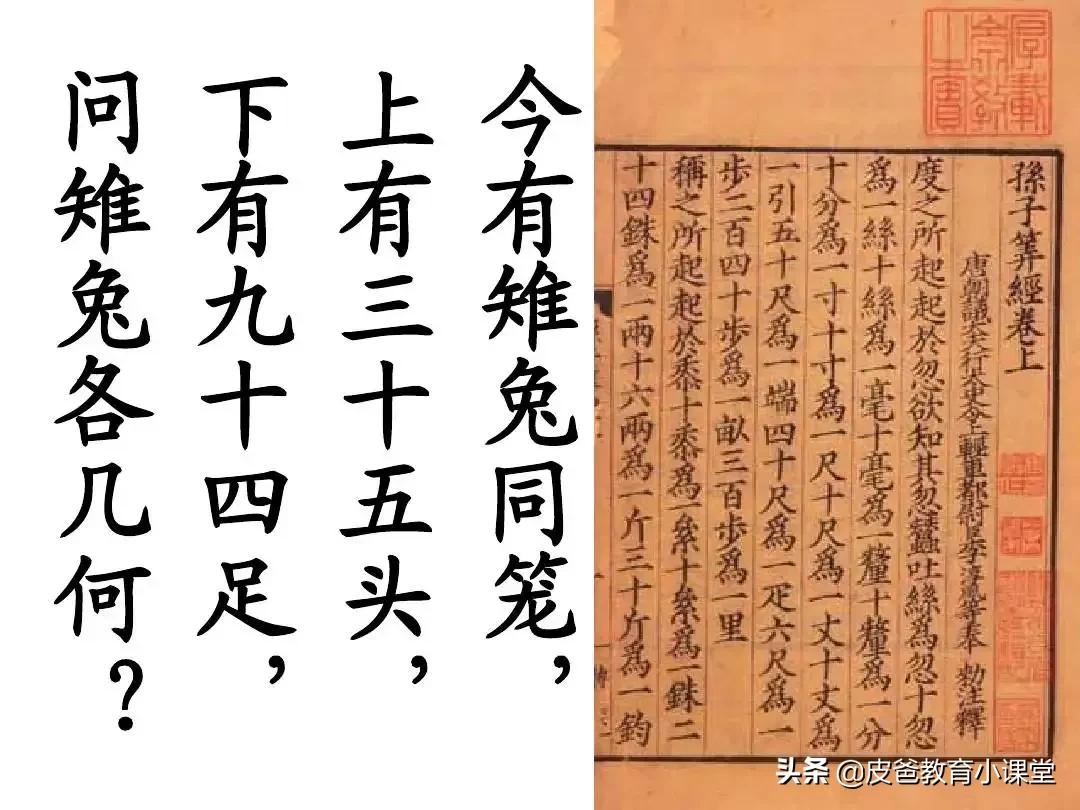 今有雉兔同笼，
上有三十五头，
下有九十四足，
问雉兔各几何？
孫子筭經卷上
唐朝議大夫行太史令上輕車都尉臣李淳風等奉 勑注釋
度之所起起於忽欲知其忽蠶吐絲爲忽十忽
爲一絲十絲爲一毫十毫爲一釐十釐爲一分
十分爲一寸十寸爲一尺十尺爲一丈十丈爲
一引五十尺爲一端四十尺爲一疋六尺爲一
歩二百四十歩爲一畝三百歩爲一里
稱之所起起於黍十黍爲一絫十絫爲一銖二
十四銖爲一兩十六兩爲一斤三十斤爲一鈞
头条 @皮爸教育小课堂